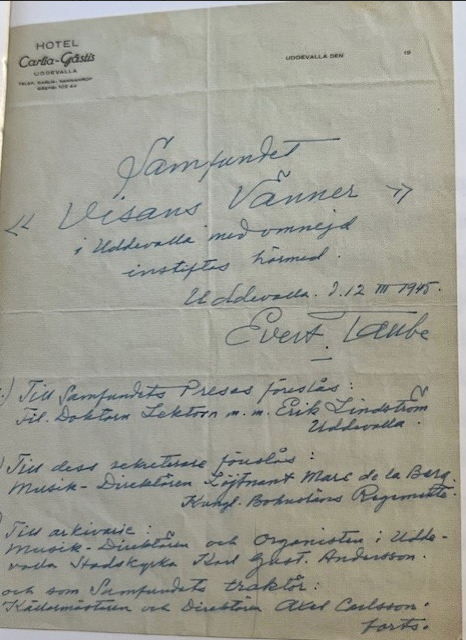 HOTEL
Carlia-Gästis
UDDEVALLA
UDDEVALLA DEN 19
Samfundet
« Visans Vänner »
i Uddevalla med omnejd
instiftas härmed.
Uddevalla. d. 12 III 1945.
Evert Taube
) Till Samfundets Preses föreslås:
Fil. Doktorn Lektorn m. m. Erik Lindström
Uddevalla.
) Till dess sekreterare föreslås:
Musik-Direktören Löjtnant Marc de la Berg
Kungl. Bohusläns Regemente.
) Till arkivarie:
Musik-Direktören och Organisten i Udde-
valla Stadskyrka Karl Gust. Andersson.
och som Samfundets traktör:
Källarmästaren och Direktören Axel Carlsson.
forts.